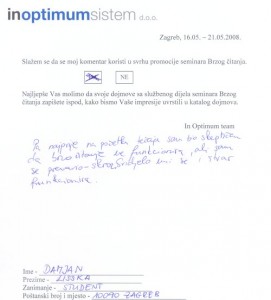 inoptimumsistem d.o.o.
Zagreb, 16.05. – 21.05.2008.
Slažem se da se moj komentar koristi u svrhu promocije seminara Brzog čitanja.
DA NE
Najljepše Vas molimo da svoje dojmove sa službenog dijela seminara Brzog
čitanja zapišete ispod, kako bismo Vaše impresije uvrstili u katalog dojmova.
In Optimum team
na početku tečaja sam bio skeptičan
da brzo čitanje ne funkcionira, ali sam
se i stvar
funkcionira.
Ime - DAMJAN
Prezime - LISSKA
Zanimanje - STUDENT
Poštanski broj i mjesto - 10090 ZAGREB